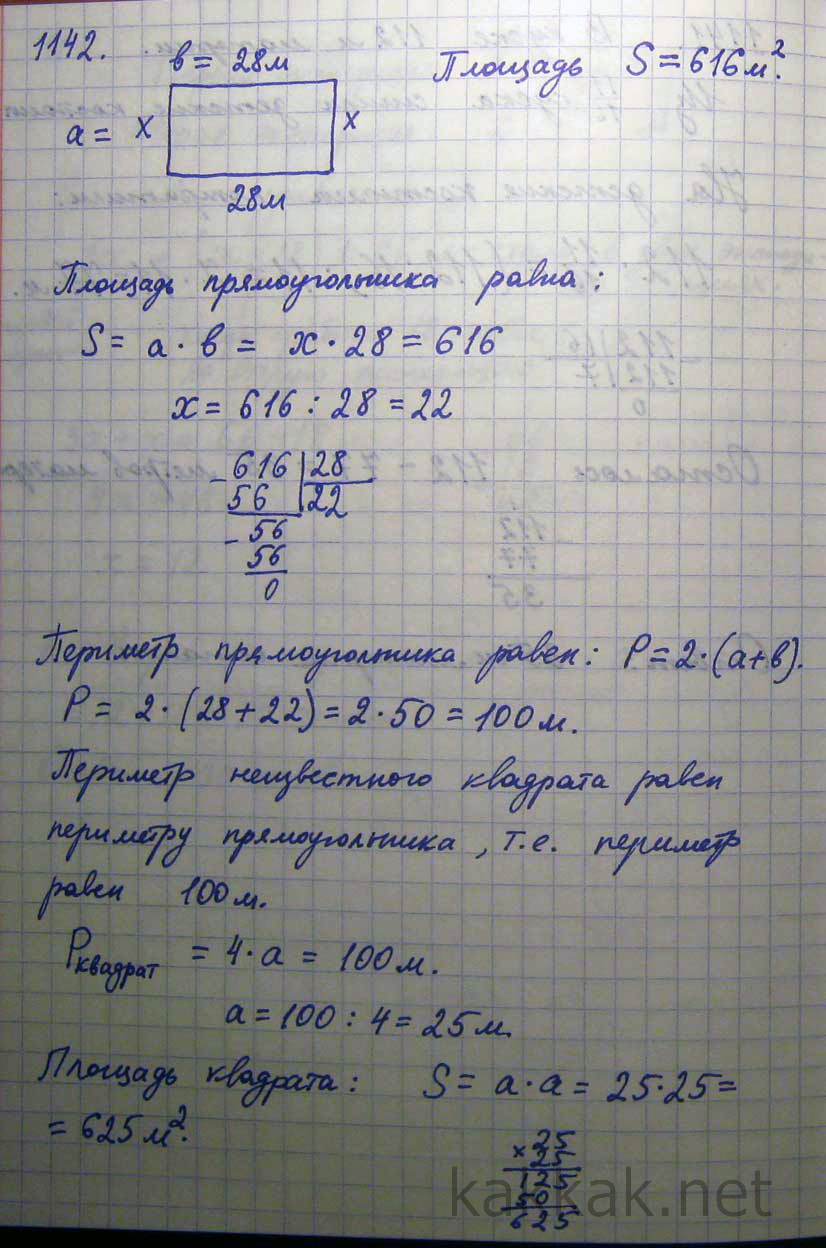 1142.
в = 28м Площадь S = 616м².
а = х х
28м
Площадь прямоугольника равна:
S = а · в = х · 28 = 616
х = 616 : 28 = 22
- 616 | 28
56 22
- 56
56
0
Периметр прямоугольника равен: Р = 2·(а+в).
Р = 2·(28+22) = 2·50 = 100м.
Периметр неизвестного квадрата равен
периметру прямоугольника, т.е. периметр
равен 100м.
Рквадрат = 4·а = 100м.
а = 100 : 4 = 25м.
Площадь квадрата: S = а·а = 25·25 =
= 625м².
× 25
25
125
50
625
kakkak.net